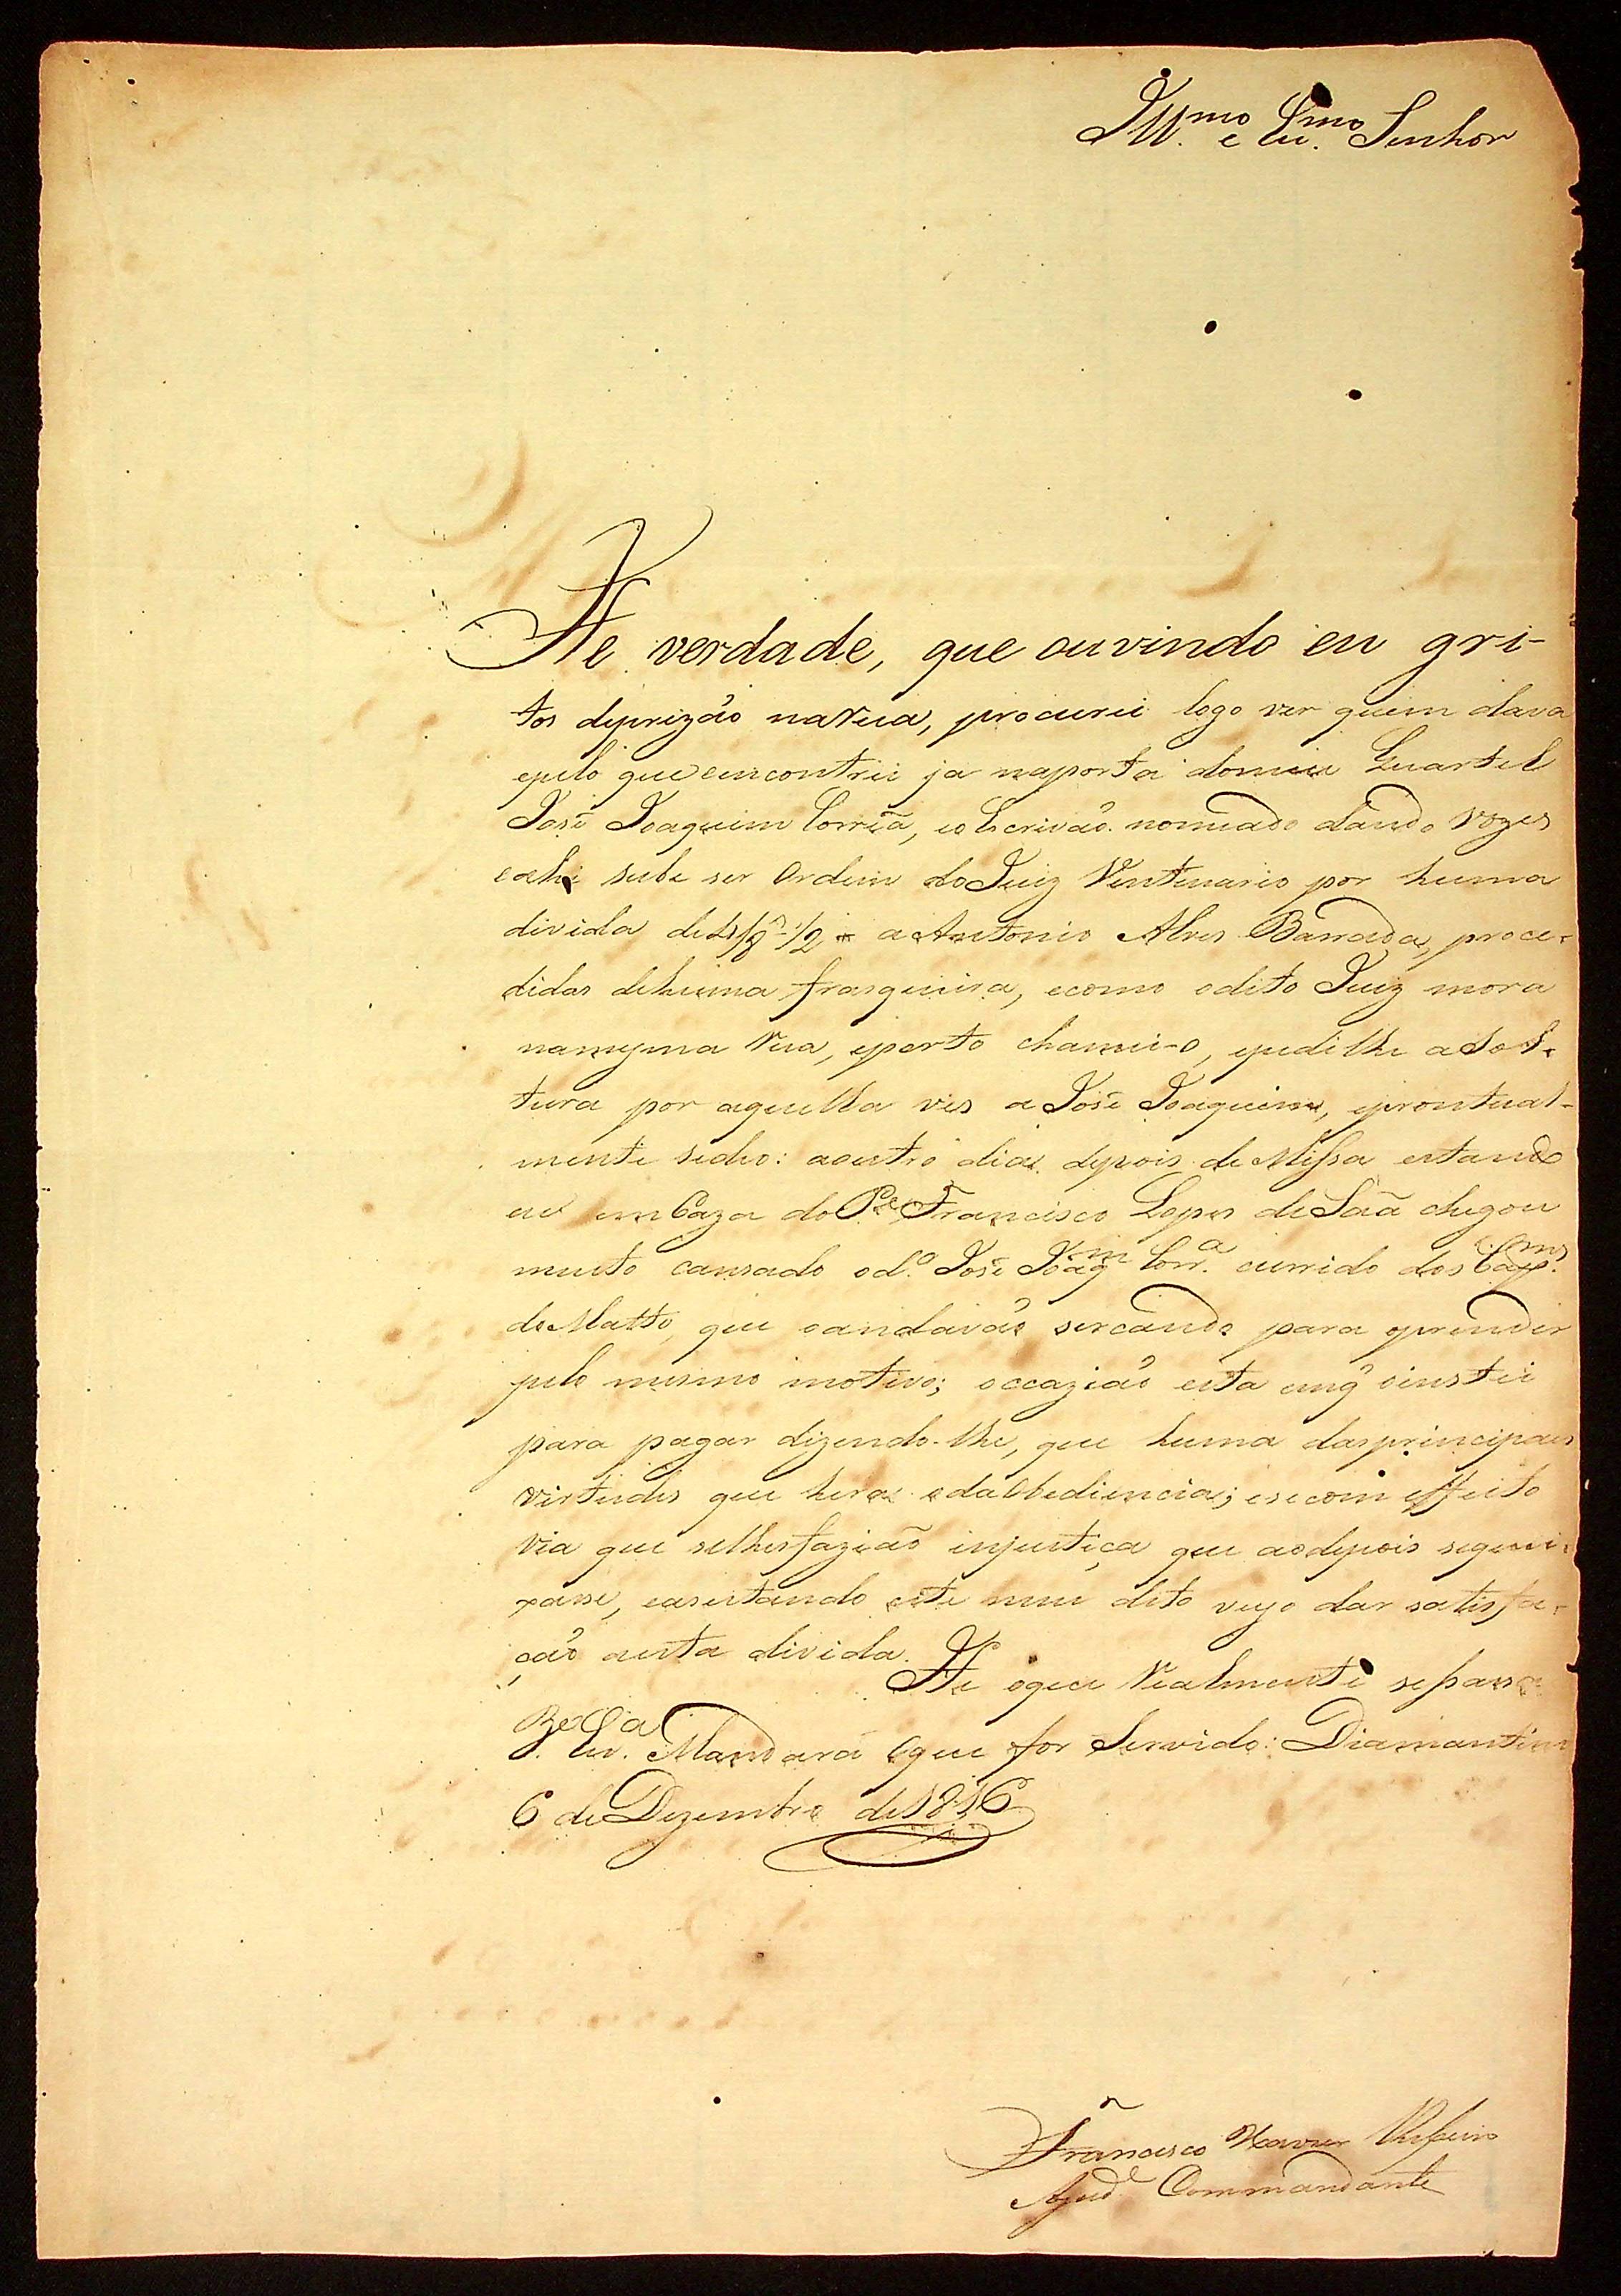 Ill.mo e Ex.mo Senhor
He verdade, que ouvindo eu gri-
tos deprizão narua, procurei logo ver quem dava
epelo que emcontrei ja naporta domeu Quartel
José Joaquim Corrêa, eo Escrivão nomeado dando vozes
eahi sube ser Ordem do Juiz Ventenario por huma
divida de 1/8.ª 1/2 a Antonio Alves Barrada, proce-
didas dehuma frasqueira, ecomo odito Juiz mora
namesma rua, eperto chamei-o, epedilhe a Sol-
tura por aquella ves a José Joaquim, eprontual-
mente sedeo: aoutro dia depois de Missa estando
eu em Caza do P.e Francisco Lopes de Sáá chegou
muito cansado o d.o José Joaq.m Corr.a currido dos Cap.ms
do Matto, que oandavão sercando para oprender
pelo mesmo motivo; occazião esta emq̃ oinstei
para pagar dizendo-lhe, que huma dasprincipaes
virtudes que hera adaObediencia; esecom effeito
via que selhesfazião injustiça que aodepois sequei-
xasse, easeitando este meu dito veyo dar satisfa-
ção aesta divida.
He oque realmente sepassa
V. Ex.a Mandará oque for Servido: Diamantino
6 de Dezembro de 1816
Francisco Xavier
Ajud.e Commandante